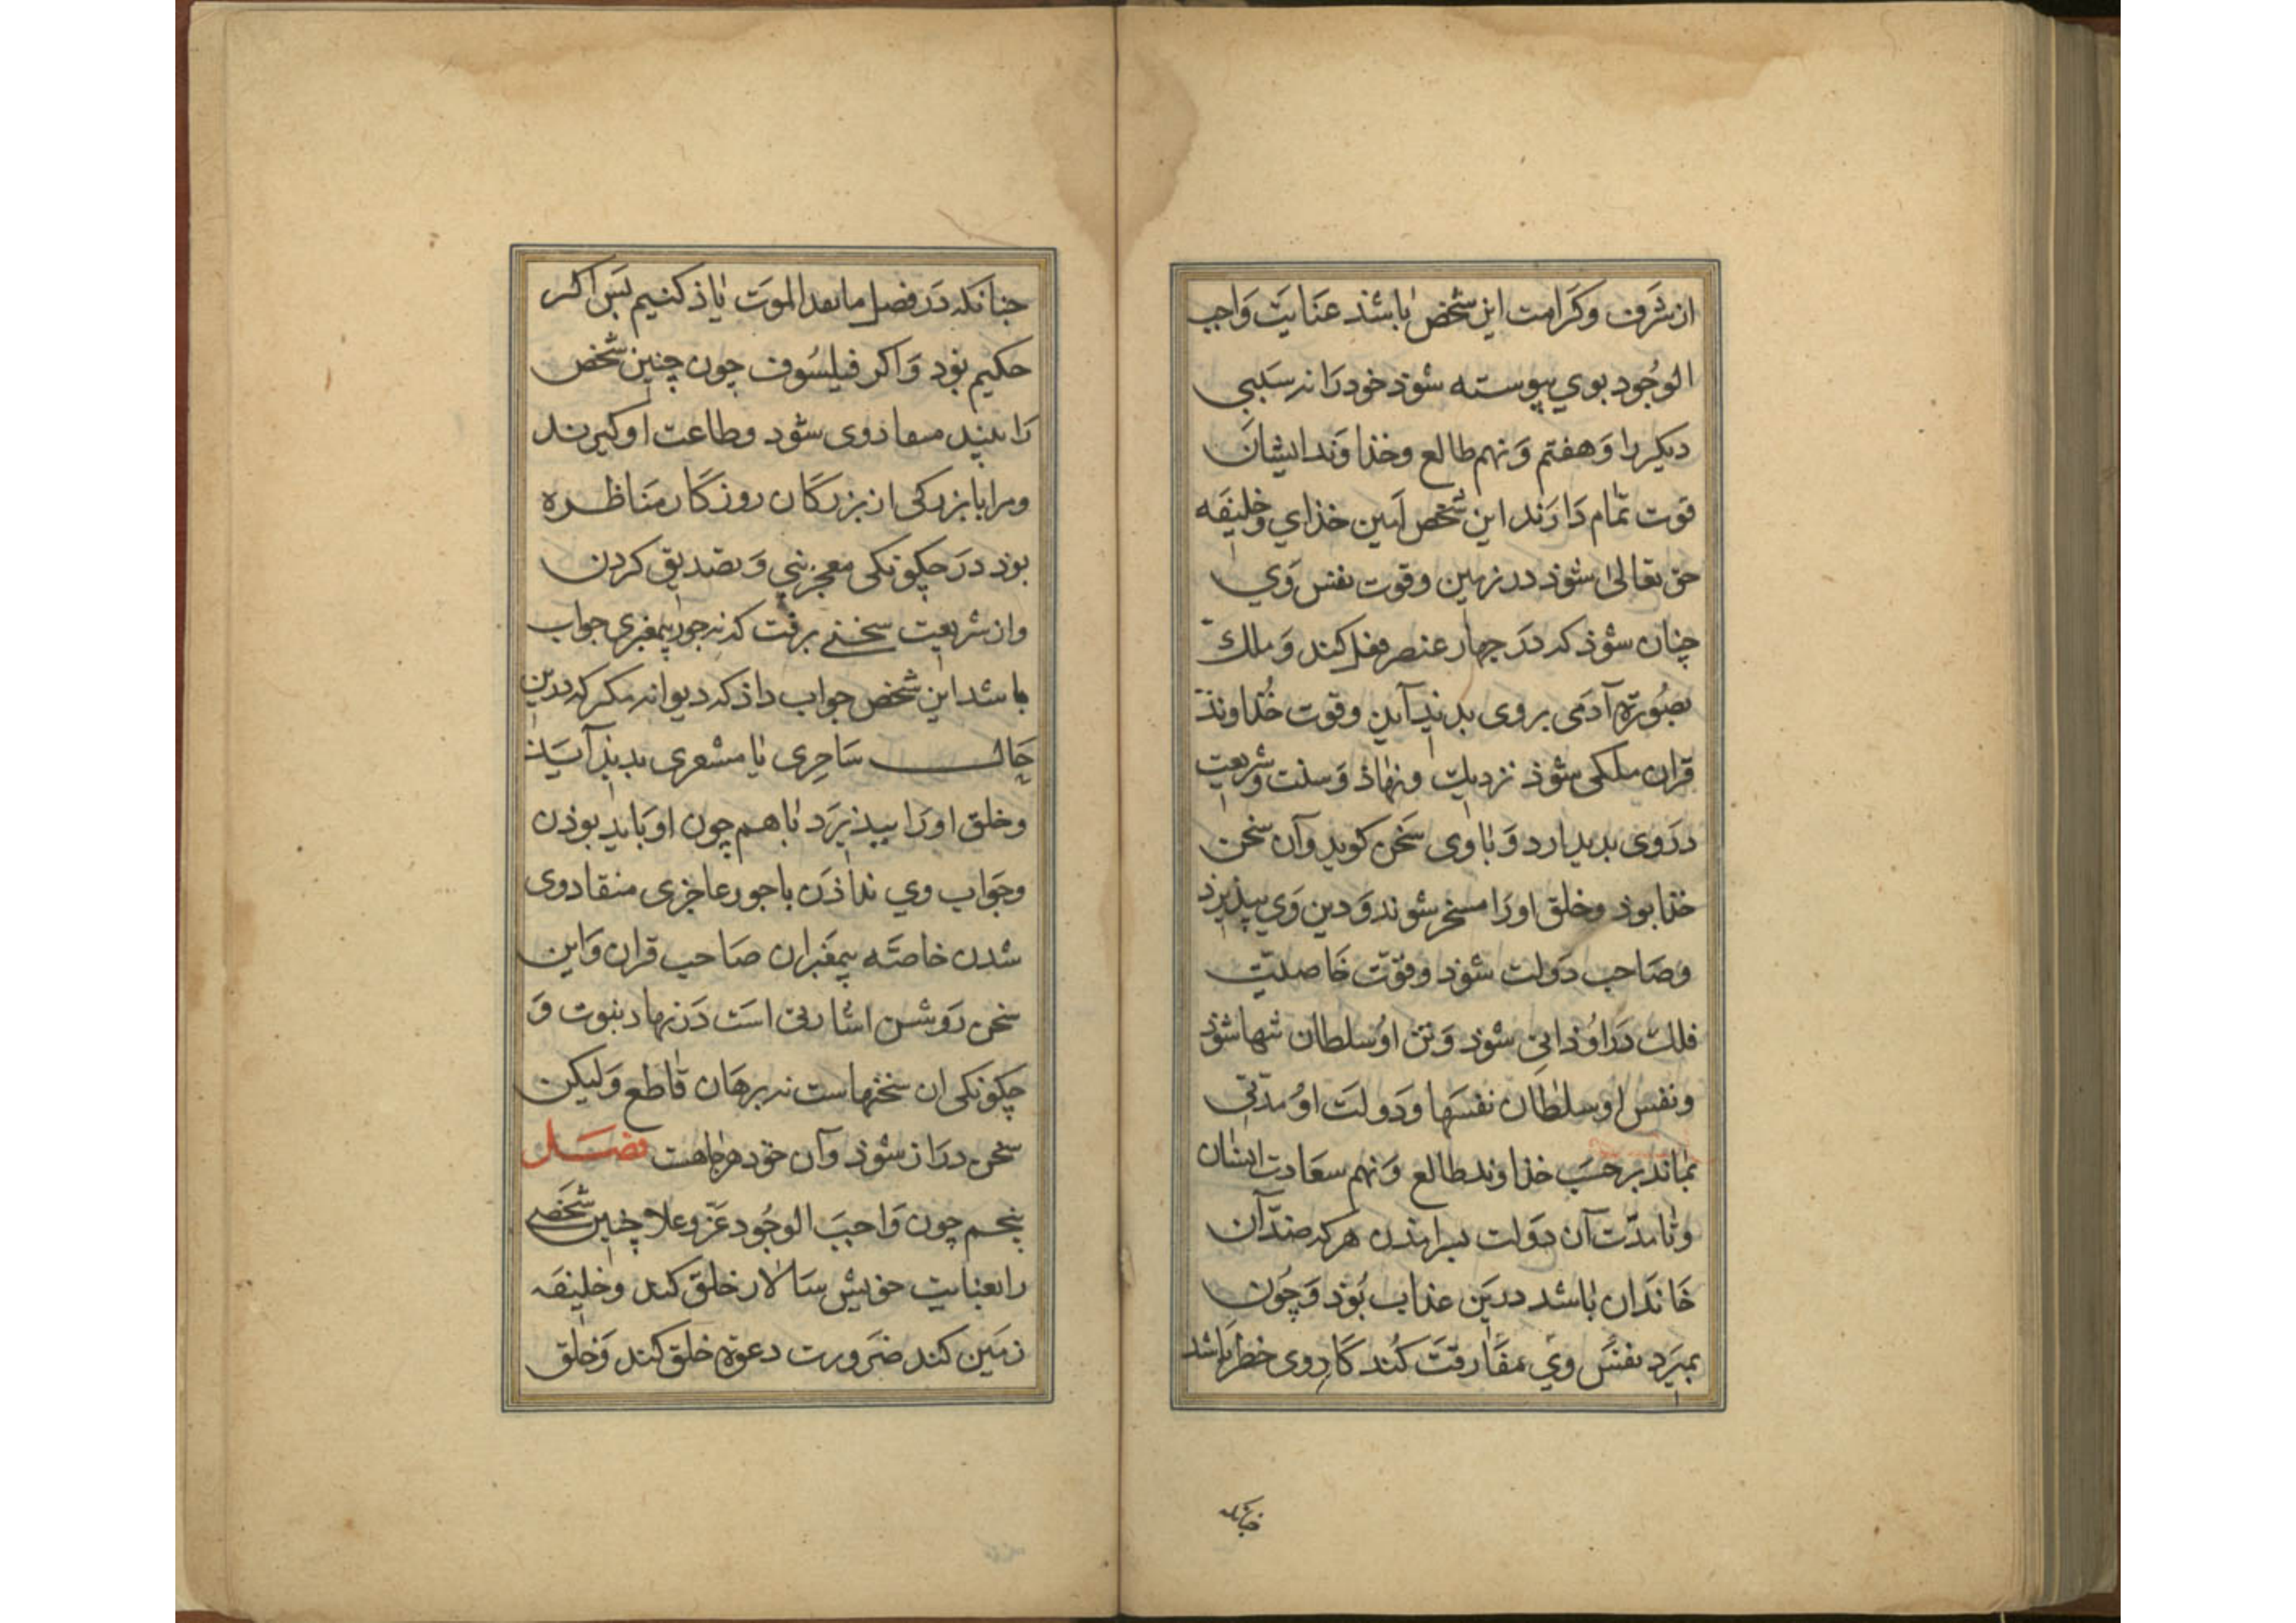 از شرف وکرامت این شخص باشذ عنایت واجب
الوجود بوي پیوسته شوذ خود را نه سببی
دیکر را وهفتم ونهم طالع وخذاوند ایشان
قوت تمام دارند این شخص امین خذای وخلیفه
حق تعالی شوذ در زمین وقوت نفس وي
چنان شوذ که در جهار عنصر فعل کند وملک
بصورة آدمی بروی بدید آید وقوت خذاوند
قران ملکی شوذ نزدیک ونهاذ وسنت وشریعت
در وی بدید ارد وبا وی سخن کوید وآن سخن
خذا بوذ وخلق اورا مسخر شوند ودین وي بپذیرد
وصاحب دولت شوذ وقوت خاصیت
فلک در او ذاتی شوذ وتن او سلطان تنها شوذ
ونفس او سلطان نفسها ودولت او مدتی
بماند بر حسب خذاوند طالع ونهم سعادت ایشان
وتا مدت آن دولت بسرامذن هرکه ضد آن
خاندان باشد درین عذاب بوذ وچون
بمیرد نفس وي مفارقت کند کار وی خطر باشد
چنانکه
جنانکه در فصل ما بعد الموت یاذ کنیم پس اکر
حکیم بوذ واکر فیلسوف چون چنین شخص
را ببیند منقاد وی شود وطاعت او کیرند
ومرا با بزرکی از بزرکان روزکار مناظره
بوذ در چکونکی معجز نبی وتصدیق کردن
وان شریعت سخنی برفت که نه جور پیغمبری جواب
باشد این شخص جواب داذ که دیوانه مکر که درین
حال ساحری یا مشعری بدید آید
وخلق اورا بپذیرد با هم چون او باید بوذن
وجواب وي نداذن با جور عاجزی منقاد وی
شدن خاصه پیغمبران صاحب قران واین
سخن روشن اشارتی است در نهاد نبوت و
چکونکی ان سخنهاست نه برهان قاطع ولیکن
سخن دراز شوذ وآن خود هر جا هست فصل
پنجم چون واجب الوجود عز وعلا چنین شخصی
را بعنایت خویش سالار خلق کند وخلیفه
زمین کند ضرورت دعوة خلق کند وخلق